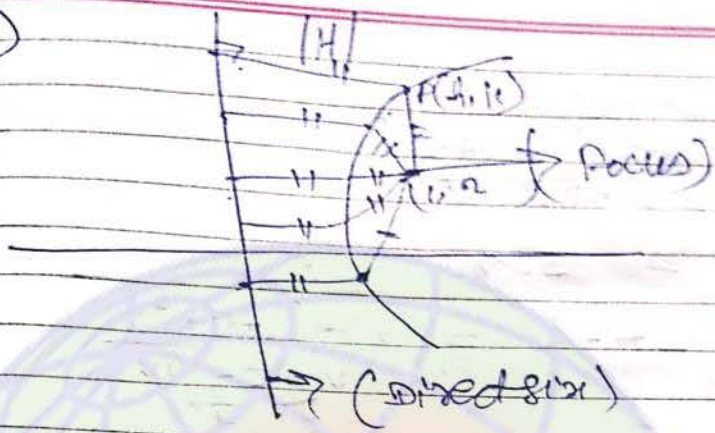 P(h, k)
(1, 2) (Focus)
(Directrix)